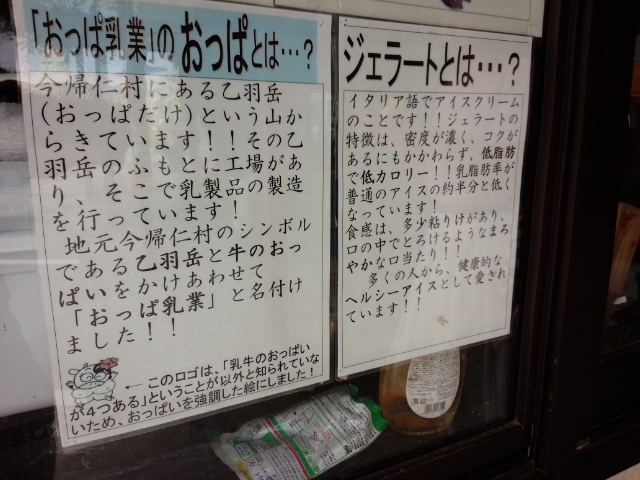 「おっぱ乳業」のおっぱとは…？
今帰仁村にある乙羽岳
(おっぱだけ)という山か
らきています！！その乙
羽岳のふもとに工場があ
り、そこで乳製品の製造
を行っています！
地元今帰仁村のシンボル
である乙羽岳と牛のおっ
ぱいをかけあわせて
「おっぱ乳業」と名付け
ました！！
←このロゴは、「乳牛のおっぱい
が４つある」ということが以外と知られていな
いため、おっぱいを強調した絵にしました！
ジェラートとは…？
イタリア語でアイスクリーム
のことです！！ジェラートの
特徴は、密度が濃く、コクが
あるにもかかわらず、低脂肪
で低カロリー！！乳脂肪率が
普通のアイスの約半分と低く
なっています！
食感は、多少粘りけがあり、
口の中でとろけるようなまろ
やかな口当たり！！
多くの人から、健康的な
ヘルシーアイスとして愛され
ています！！